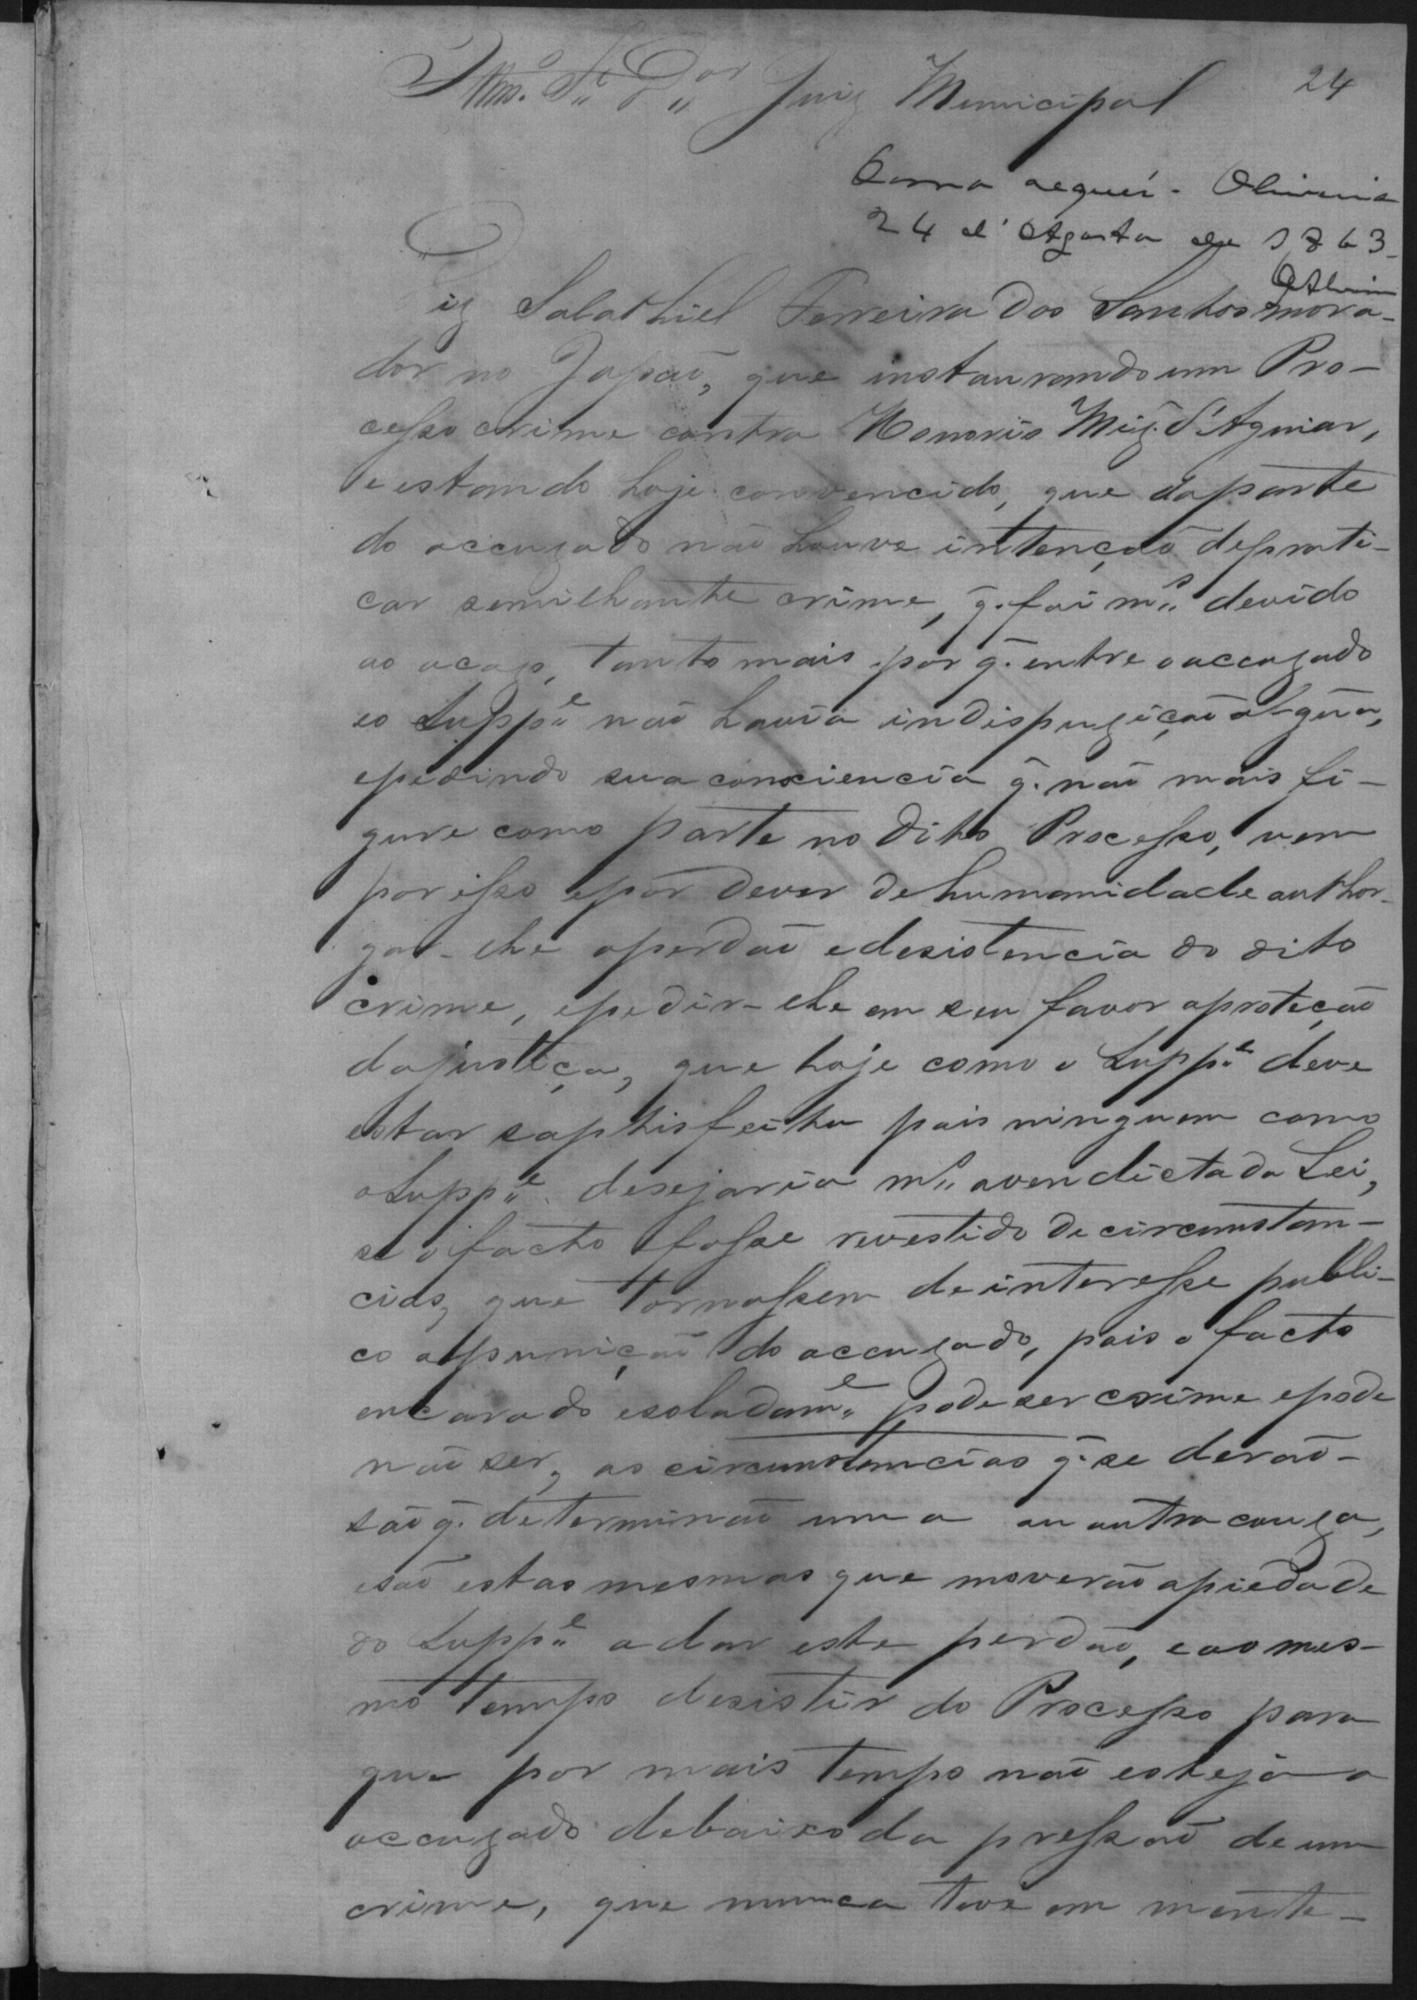 Illmo. Sr. Dor Juiz Municipal
24
Como requer. Oliveira
24 d'Agosto de 1863.
Diz Salathiel Ferreira dos Santos mora-
dor no Japaõ, que instaurando um Pro-
cesso crime contra Honorio Mig.l d'Aguiar,
e estando hoje convencido, que daparte
do accuzado naõ houve intençaõ deprati-
car semilhante crime, q̃. foi m.s devido
ao acazo, tanto mais por q̃. entre oaccuzado
eo Supp.e naõ havia indispuziçaõ algũa,
epedindo sua consciencia q̃. naõ mais fi-
gure como parte no dito Processo, vem
por isso epor dever dehumanidade outhor-
gar-lhe operdaõ edesistencia do dito
crime, epedir-lhe em seu favor aproteçaõ
dajustiça, que hoje como o Supp.e deve
estar saptisfeita pois ninguem como
oSupp.e desejaria m.s avendicta da Lei,
se o facto fosse revestido decircumstan-
cias, que tornassem deinteresse publi-
co apuniçaõ do accuzado, pois o facto
encarado isoladam.e pode ser crime epode
naõ ser, as circunstancias q̃. se deraõ-
saõ q̃. determinaõ uma ou outra couza,
esaõ estas mesmas que moveraõ apiedade
do Supp.e a dar este perdaõ, eaomes-
mo tempo desistir do Processo para
que por mais tempo naõ esteja o
accuzado debaixo da pressaõ de um
crime, que nunca teve em mente-